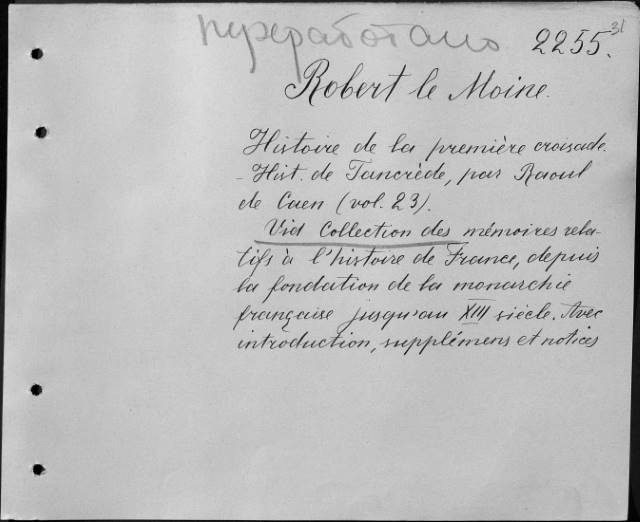 переработано
2255. 31
Robert le Moine.
Histoire de la première croisade.
- Hist. de Tancrède, par Raoul
de Caen (vol. 23).
Vid Collection des mémoires rela-
tifs à l'histoire de France, depuis
la fondation de la monarchie
française jusqu'au XIII siècle. Avec
introduction, supplémens et notices